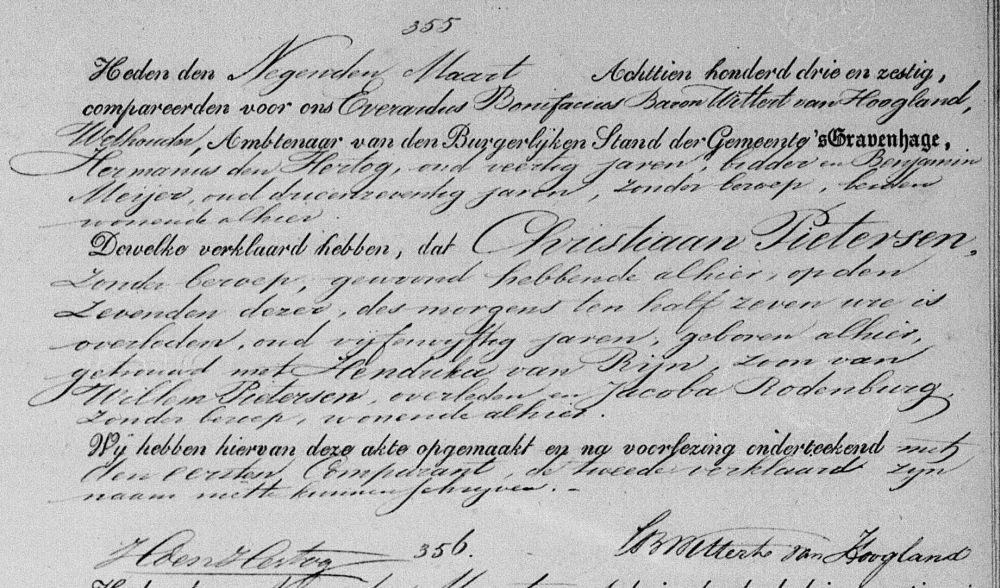 355
Heden den Negenden Maart Achttien honderd drie en zestig,
compareerden voor ons Everardus Bonifacius Baron Wittert van Hoogland,
Wethouder, Ambtenaar van den Burgerlijken Stand der Gemeente 's Gravenhage,
Hermanus den Hertog, oud veertig jaren, bidder en Benjamin
Meijer, oud drieenzeventig jaren, zonder beroep, beiden
wonende alhier
Dewelke verklaard hebben, dat Christiaan Pietersen,
zonder beroep, gewoond hebbende alhier, op den
Zevenden dezer, des morgens ten half zeven ure is
overleden, oud vijfenvijftig jaren, geboren alhier,
getrouwd met Hendrika van Rijn, zoon van
Willem Pietersen, overleden en Jacoba Rodenburg,
zonder beroep, wonende alhier.
Wij hebben hiervan deze akte opgemaakt en na voorlezing onderteekend met
den eersten Comparant, de tweede verklaard zijn
naam niet te kunnen schrijven. -
HdenHertog 356. Wittert van Hoogland
Heden den